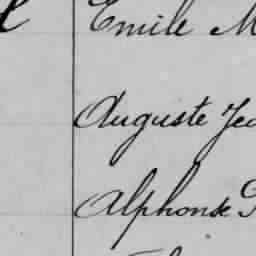 Emile M
Auguste Jea
Alphonse